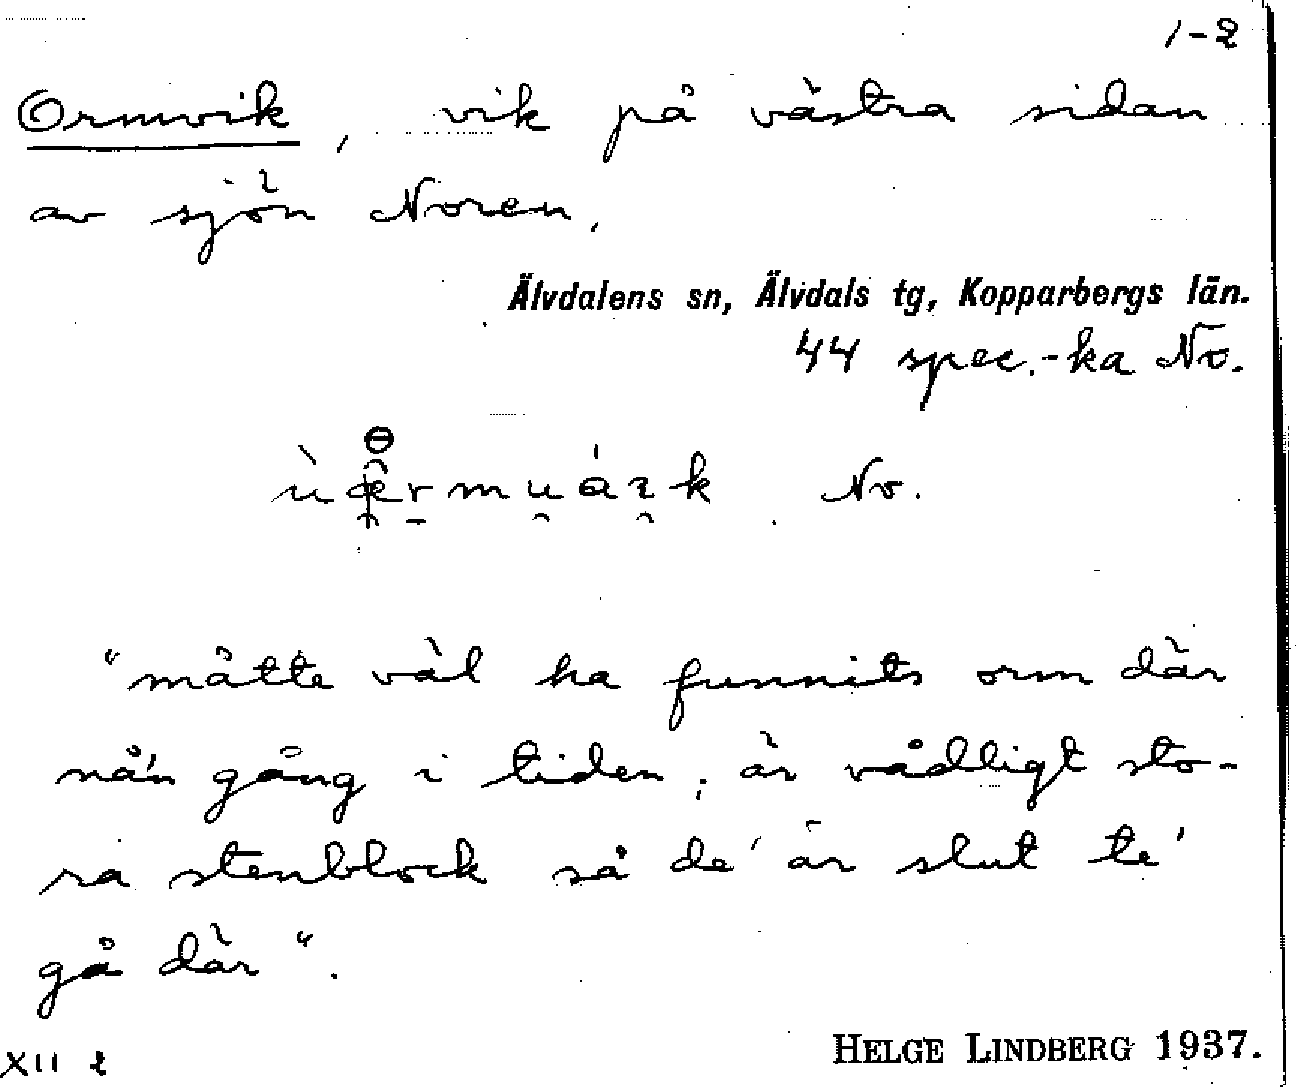 1-2
Ormvik, vik på västra sidan
av sjön Noren.
Älvdalens sn, Älvdals tg, Kopparbergs län.
44 spec.-ka No.
No.
"måtte väl ha funnits orm där
nå'n gång i tiden; är vådligt sto-
ra stenblock så de' är slut te'
gå där".
HELGE LINDBERG 1937.
XII 2